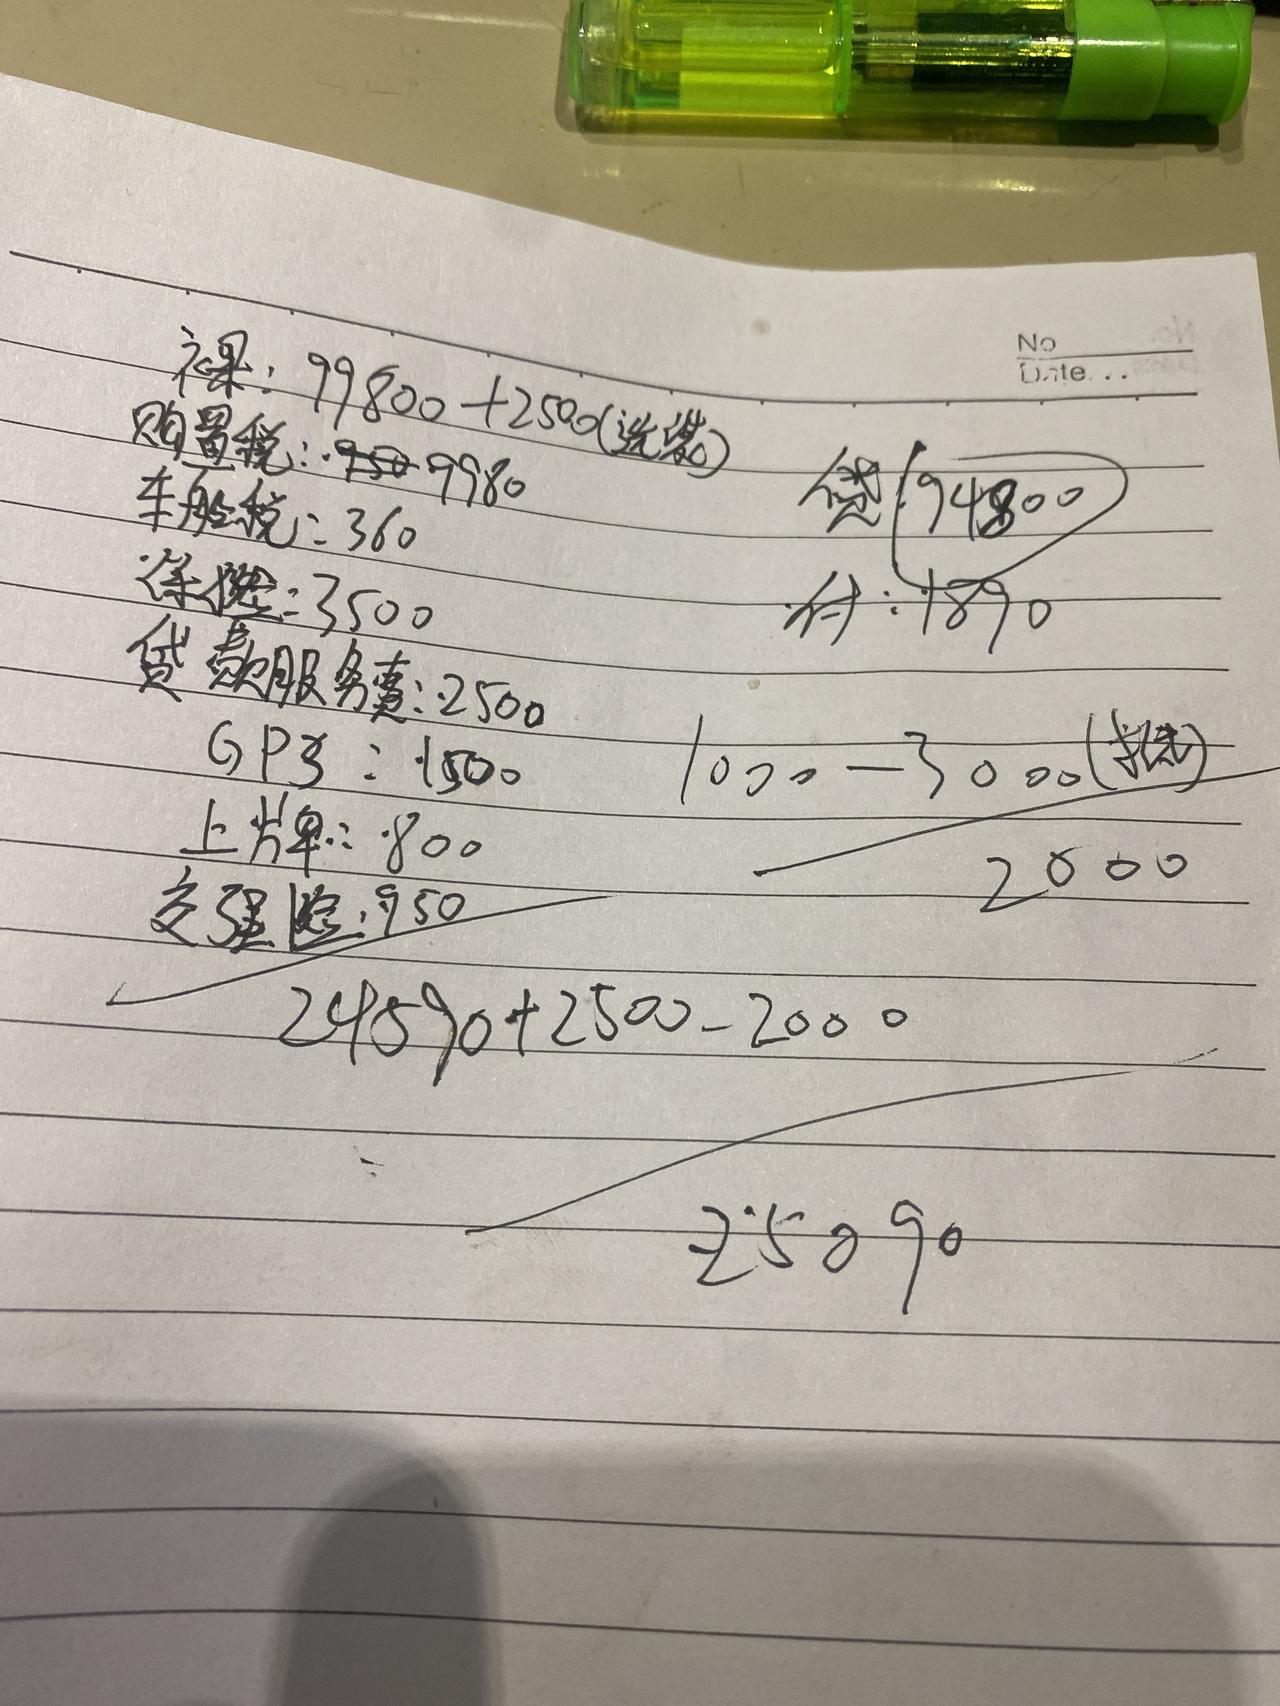 No
Date...
裸: 99800+2500(选装)
购置税: 950 9980
车船税: 360
保险: 3500
贷款服务费: 2500
GPS: 1500
上牌: 800
交强险: 950
贷: 94800
付: 1890
1000-3000
2000
24590+2500-2000
25090